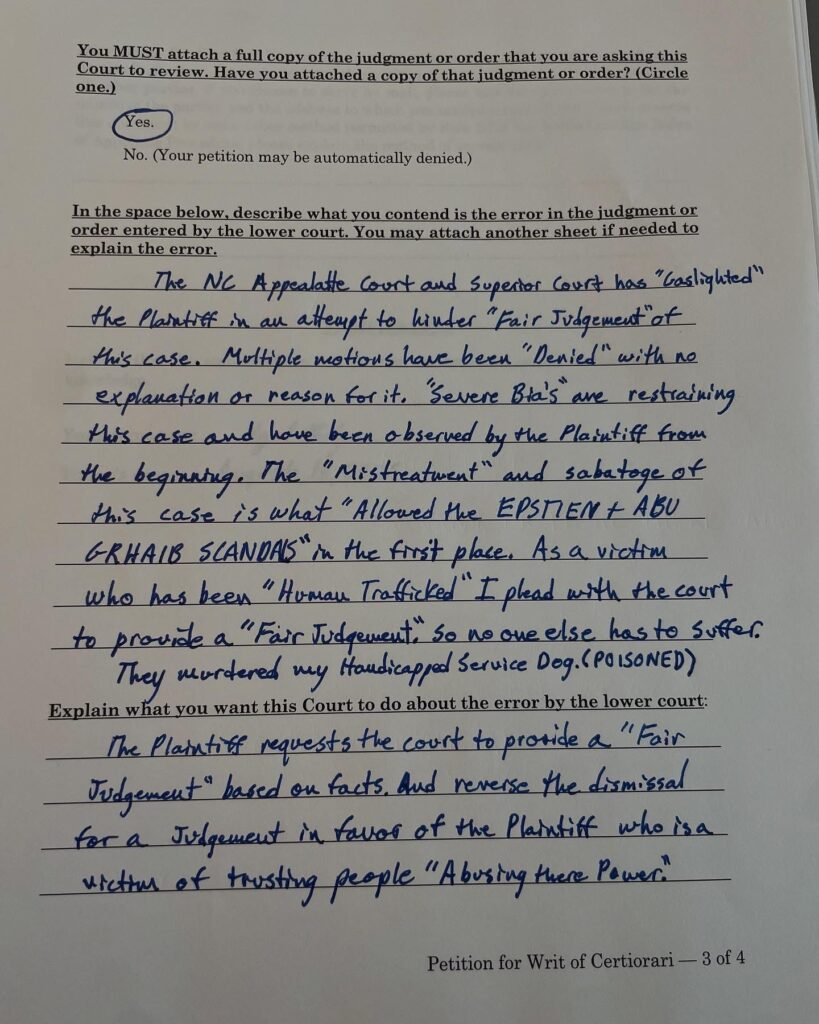 You MUST attach a full copy of the judgment or order that you are asking this
Court to review. Have you attached a copy of that judgment or order? (Circle
one.)
Yes.
No. (Your petition may be automatically denied.)
In the space below, describe what you contend is the error in the judgment or
order entered by the lower court. You may attach another sheet if needed to
explain the error.
The NC Appealatte Court and Superior Court has "Gaslighted"
the Plaintiff in an attempt to hinder "Fair Judgement" of
this case. Multiple motions have been "Denied" with no
explanation or reason for it. "Severe Bia's" are restraining
this case and have been observed by the Plaintiff from
the beginning. The "Mistreatment" and sabatoge of
this case is what "Allowed the EPSTIEN + ABU
GRHAIB SCANDALS" in the first place. As a victim
who has been "Human Trafficked" I plead with the court
to provide a "Fair Judgement". So no one else has to suffer.
They murdered my Handicapped Service Dog. (POISONED)
Explain what you want this Court to do about the error by the lower court:
The Plaintiff requests the court to provide a "Fair
Judgement" based on facts. And reverse the dismissal
for a Judgement in favor of the Plaintiff who is a
victim of trusting people "Abusing there Power."
Petition for Writ of Certiorari — 3 of 4